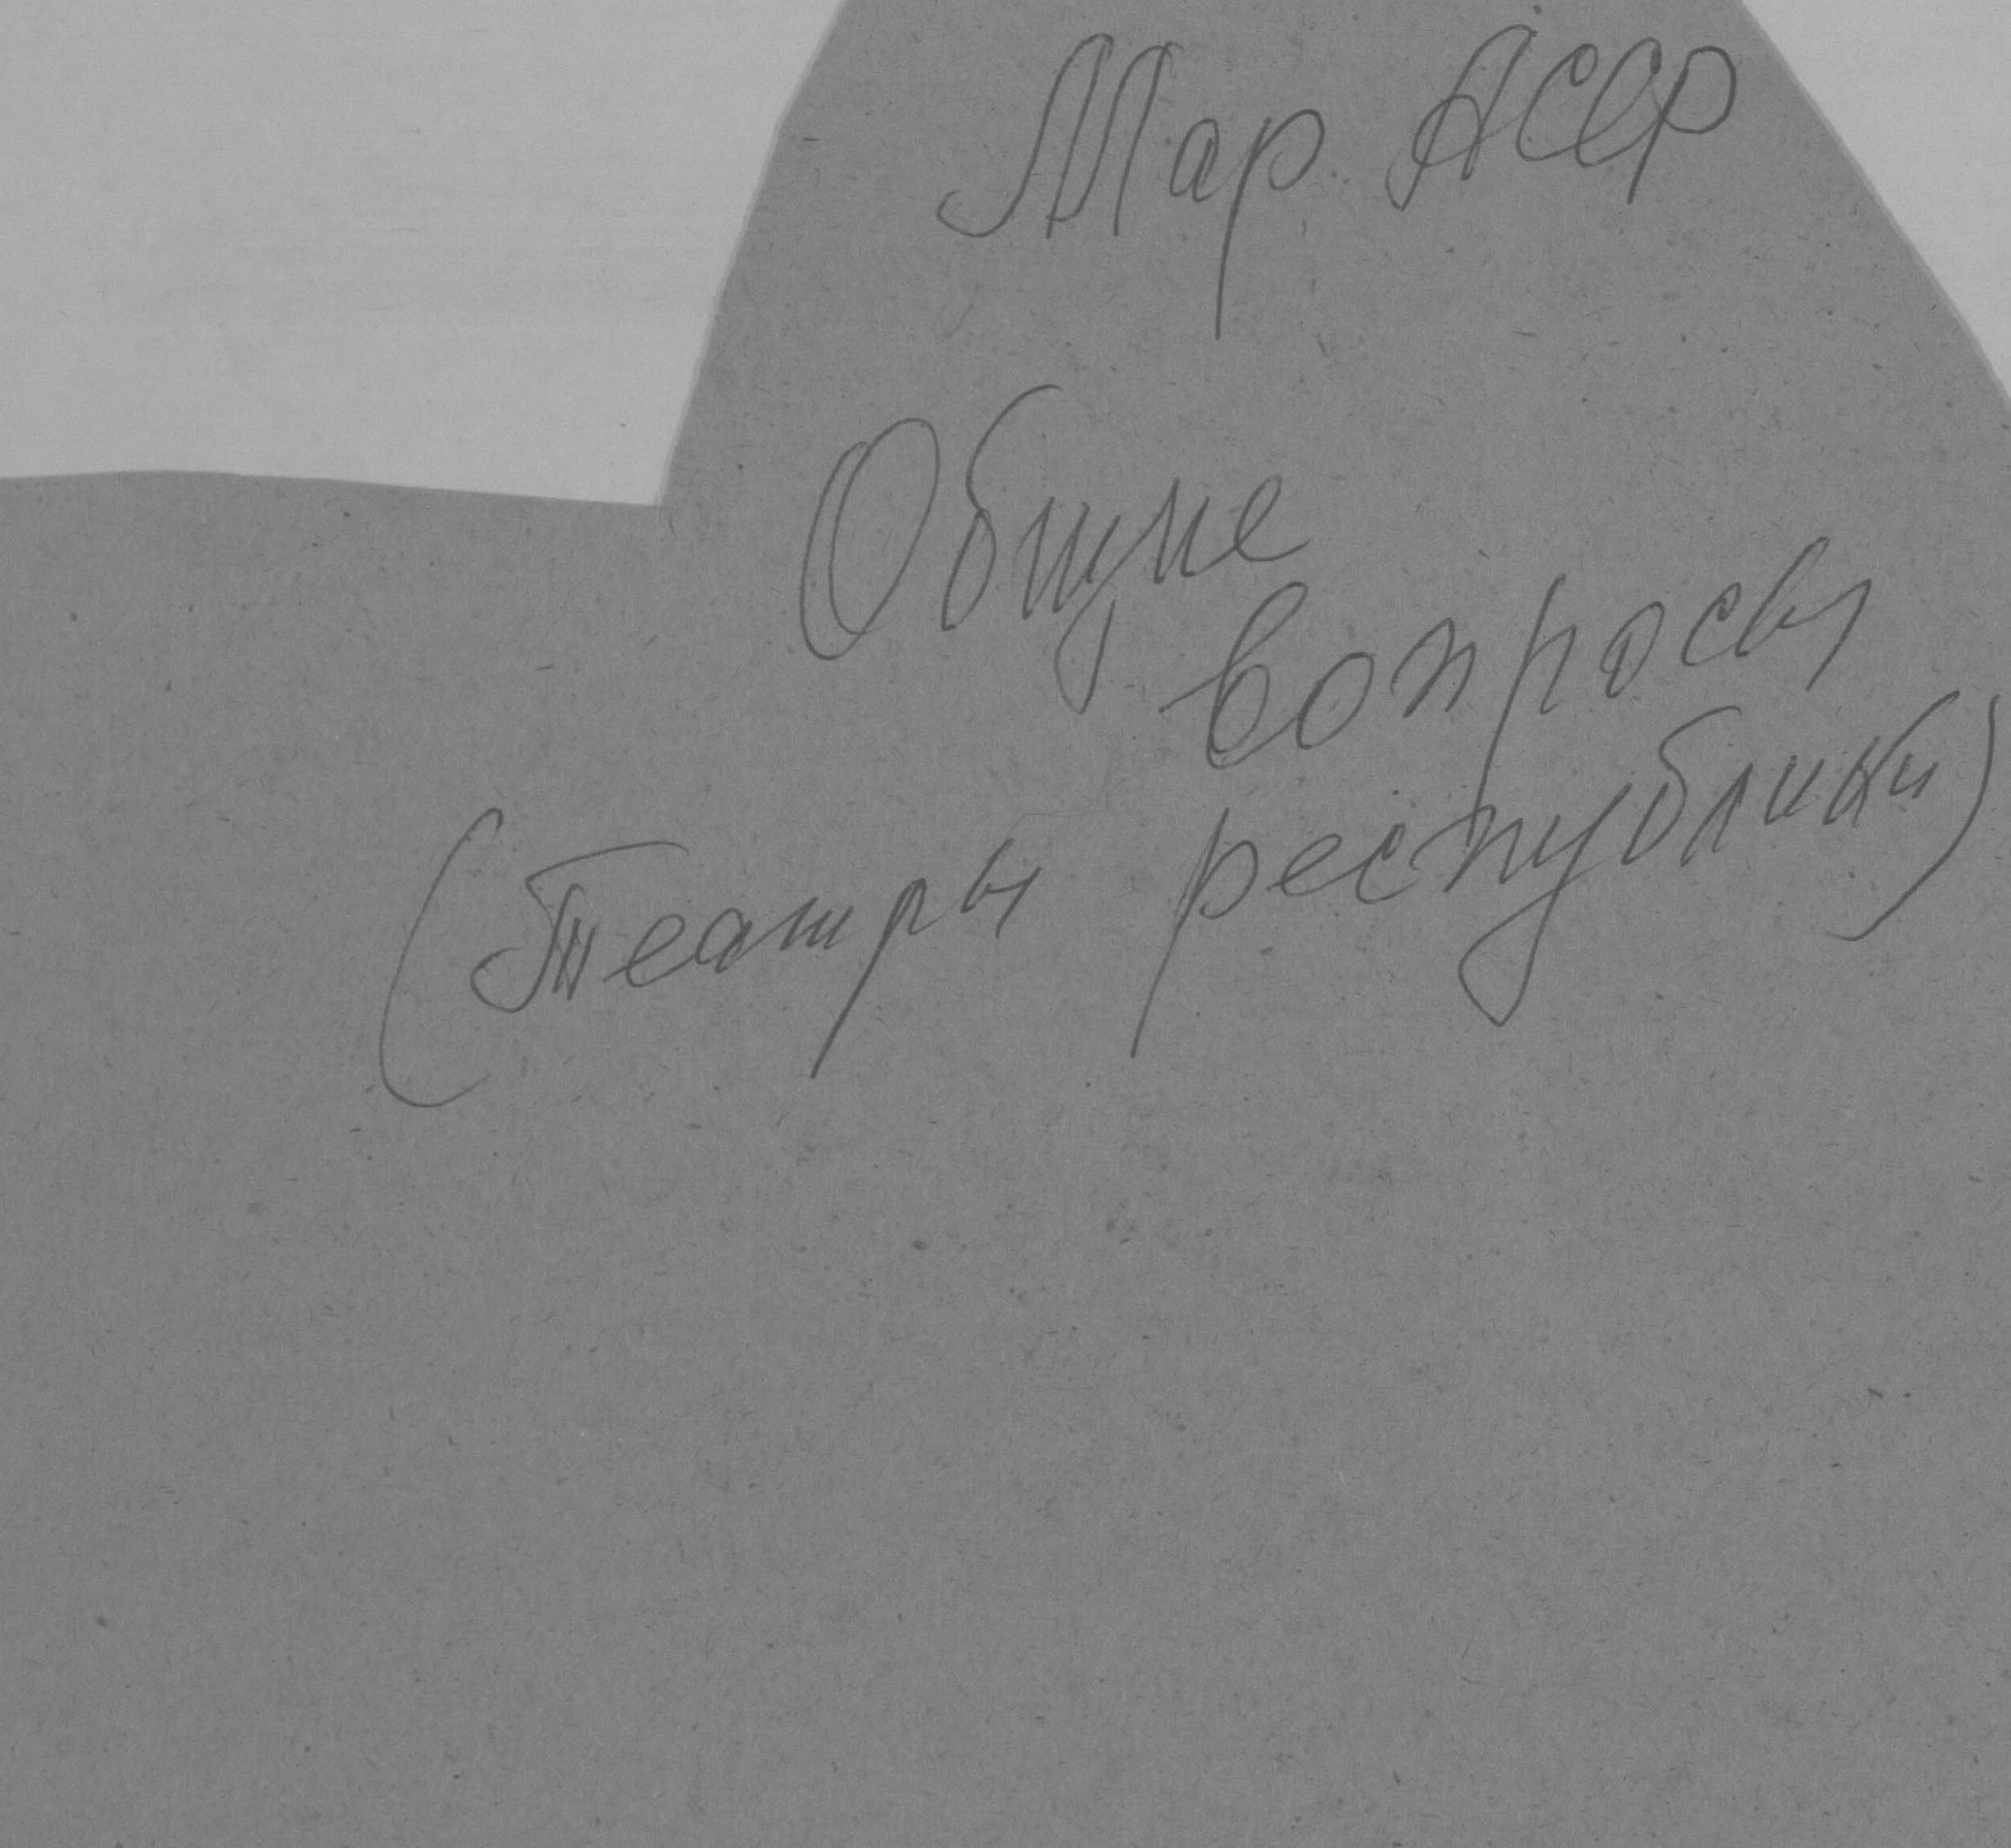 Мар. АССР
Общие
вопросы
(Театры республики)